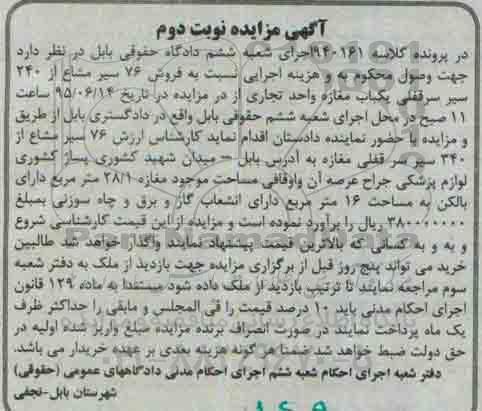 آگهی مزایده نوبت دوم
در پرونده کلاسه ۹۴۰۱۶۱اجرای شعبه ششم دادگاه حقوقی بابل در نظر دارد
جهت وصول محکوم به و هزینه اجرایی نسبت به فروش ۷۶ سیر مشاع از ۲۴۰
سیر سرقفلی یکباب مغازه واحد تجاری از در مزایده در تاریخ ۹۵/۰۶/۱۴ ساعت
۱۱ صبح در محل اجرای شعبه ششم حقوقی بابل واقع در دادگستری بابل از طریق
و مزایده با حضور نماینده دادستان اقدام نماید کارشناس ارزش ۷۶ سیر مشاع از
۳۴۰ سیر سرقفلی مغازه به آدرس بابل – میدان شهید کشوری پساژ کشوری
لوازم پزشکی جراح عرصه آن واوقافی مساحت موجود مغازه ۲۸/۱ متر مربع دارای
بالکن به مساحت ۱۶ متر مربع دارای انشعاب گاز و برق و چاه سوزنی بمبلغ
۳۸۰۰۰۰۰۰۰۰ ریال را برآورد نموده است و مزایده ازاین قیمت کارشناسی شروع
و به و به کسانی که بالاترین قیمت پیشنهاد نمایند واگذار خواهد شد طالبین
خرید می تواند پنج روز قبل از برگزاری مزایده جهت بازدید از ملک به دفتر شعبه
سوم مراجعه نمایند تا ترتیب بازدید از ملک داده شود مستفدا به ماده ۱۲۹ قانون
اجرای احکام مدنی باید ۱۰ درصد قیمت را فی المجلس و مابقی را حداکثر ظرف
یک ماه پرداخت نمایند در صورت انصراف برنده مزایده مبلغ واریز شده اولیه در
حق دولت ضبط خواهد شد ضمنا هر گونه هزینه بعدی بر عهده خریدار می باشد.
دفتر شعبه اجرای احکام شعبه ششم اجرای احکام مدنی دادگاههای عمومی (حقوقی)
شهرستان بابل-نجفی